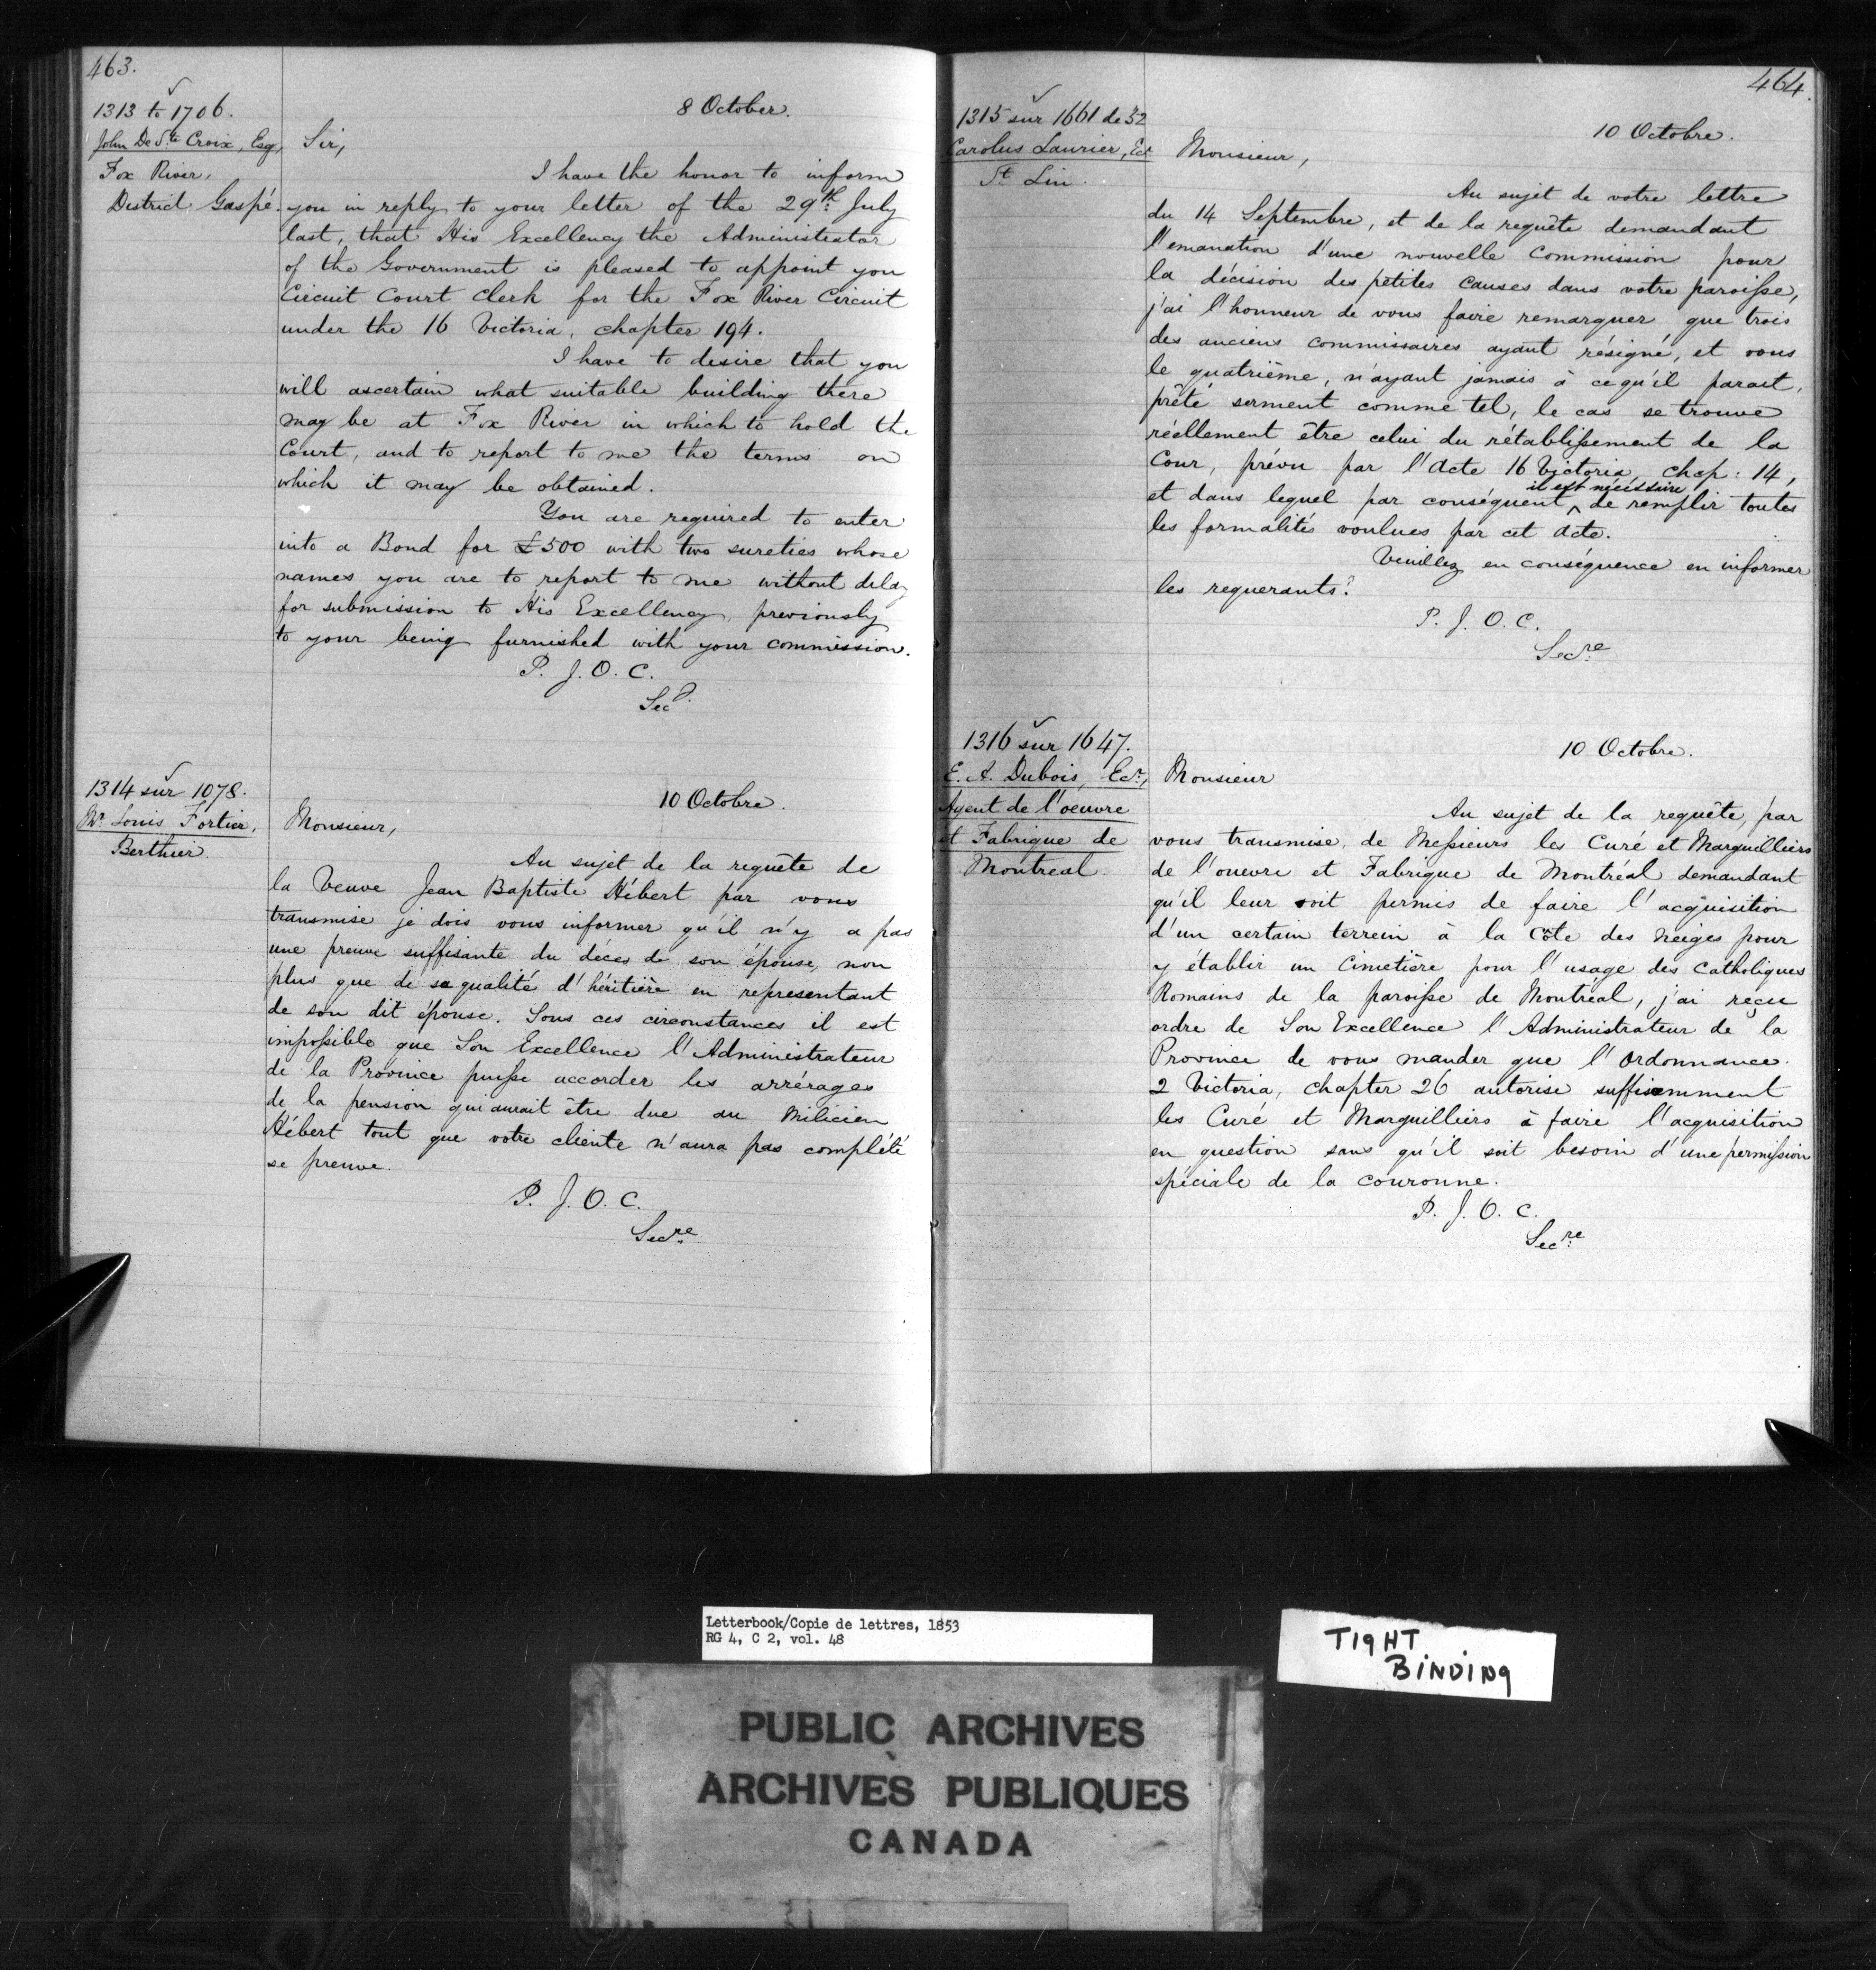 463.
1313 to 1706.
John De Ste. Croix, Esq,
Fox River,
District Gaspé.
8 October.
Sir,
I have the honor to inform
you in reply to your letter of the 29th July
last, that His Excellency the Administrator
of the Government is pleased to appoint you
Circuit Court Clerk for the Fox River Circuit
under the 16 Victoria, chapter 194.
I have to desire that you
will ascertain what suitable building there
may be at Fox River in which to hold the
Court, and to report to me the terms on
which it may be obtained.
You are required to enter
into a Bond for £500 with two sureties whose
names you are to report to me without delay
for submission to His Excellency, previously
to your being furnished with your commission.
P. J. O. C.
Secy.
1314 sur 1078.
Mr. Louis Fortier,
Berthier.
10 Octobre.
Monsieur,
Au sujet de la requête de
la Veuve Jean Baptiste Hébert par vous
transmise je dois vous informer qu'il n'y a pas
une preuve suffisante du décès de son épouse, non
plus que de sa qualité d'héritière en representant
de son dit épouse. Sous ces circonstances il est
impossible que Son Excellence l'Administrateur
de la Province puisse accorder les arrérages
de la pension qui aurait être due au Milicien
Hébert tout que votre cliente n'aura pas complété
se preuve.
P. J. O. C.
Secre
464.
1315 sur 1661 de 52
Carolus Laurier, Ecr
St. Lin.
10 Octobre.
Monsieur,
Au sujet de votre lettre
du 14 Septembre, et de la requête demandant
l'emanation d'une nouvelle Commission pour
la décision des petites causes dans votre paroisse,
j'ai l'honneur de vous faire remarquer, que trois
des anciens commissaires ayant résigné, et vous
le quatrième, n'ayant jamais à ce qu'il parait,
prêté serment comme tel, le cas se trouve
réellement être celui du rétablissement de la
Cour, prévu par l'Acte 16 Victoria, chap: 14,
et dans lequel par conséquent ^ il est nécéssaire de remplir toutes
les formalités voulues par cet acte.
Veuillez en conséquence en informer
les requerants.
P. J. O. C.
Secre
1316 sur 1647.
E. A. Dubois, Ecr,
Agent de l'oeuvre
et Fabrique de
Montreal.
10 Octobre.
Monsieur
Au sujet de la requête, par
vous transmise, de Messieurs les Curé et Marguilliers
de l'ouevre et Fabrique de Montréal demandant
qu'il leur soit permis de faire l'acquisition
d'un certain terrein à la Côte des neiges pour
y établir un Cimetière pour l'usage des Catholiques
Romains de la paroisse de Montreal, j'ai reçu
ordre de Son Excellence l'Administrateur de la
Province de vous mander que l'Ordonnance
2 Victoria, chapter 26 autorise suffisemment
les Curé et Marguilliers à faire l'acquisition
en question sans qu'il soit besoin d'une permission
spéciale de la couronne.
P. J. O. C.
Secre
Letterbook/Copie de lettres, 1853
RG 4, C 2, vol. 48
TIGHT
BINDING
PUBLIC ARCHIVES
ARCHIVES PUBLIQUES
CANADA